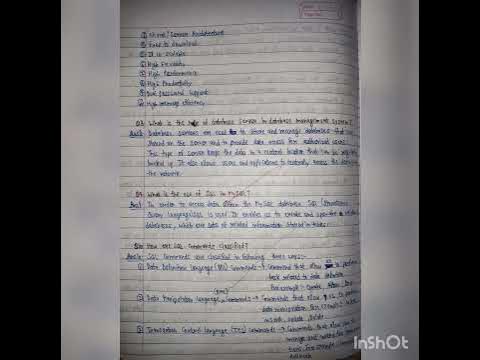 ① Client / Server Architecture
② Free to download
③ It is scalable
④ High Flexibility
⑤ High Performance
⑥ High Productivity
⑦ Dual password support
⑧ High memory efficiency
Q.8 What is the role of database server in database management systems?
Ans:8 Database servers are used to store and manage databases that are
stored on the server and to provide data access for authorized users.
This type of server keeps the data in a central location that can be regularly
backed up. It also allows users and applications to centrally access the data across
the network.
Q.9 What is the use of SQL in MySQL?
Ans: In order to access data from the MySQL database, SQL (Structured
Query Language) is used. It enables us to create and operate on relational
databases, which are sets of related information stored in tables.
Q.10 How are SQL commands classified?
Ans:10 SQL commands are classified in following three ways:-
① Data Definition Language (DDL) commands → Commands that allow us to perform
task related to data definition
For example - Create, Alter,
(DML)
② Data Manipulation Language commands → Commands that allow us to perform
data manipulation for example -
insert, delete, update.
③ Transaction Control Language (TCL) commands → Commands that allow us to
manage and control the
for example -
InShOt